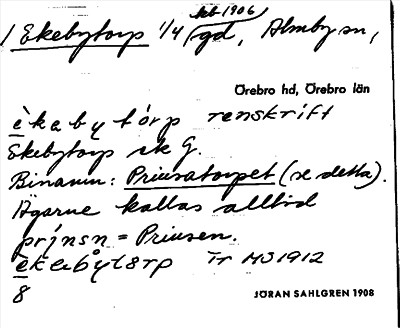 kb 1906
1 Ekebytorp 1/4 gd, Almby sn,
Örebro hd, Örebro län
èkabytórp renskrift
Ekebytorp sk G.
Binamn: Prinsatorpet (se detta).
Ägarne kallas alltid
prínsn = Prinsen.
èkebåtørp Tr MS 1912
8
JÖRAN SAHLGREN 1908